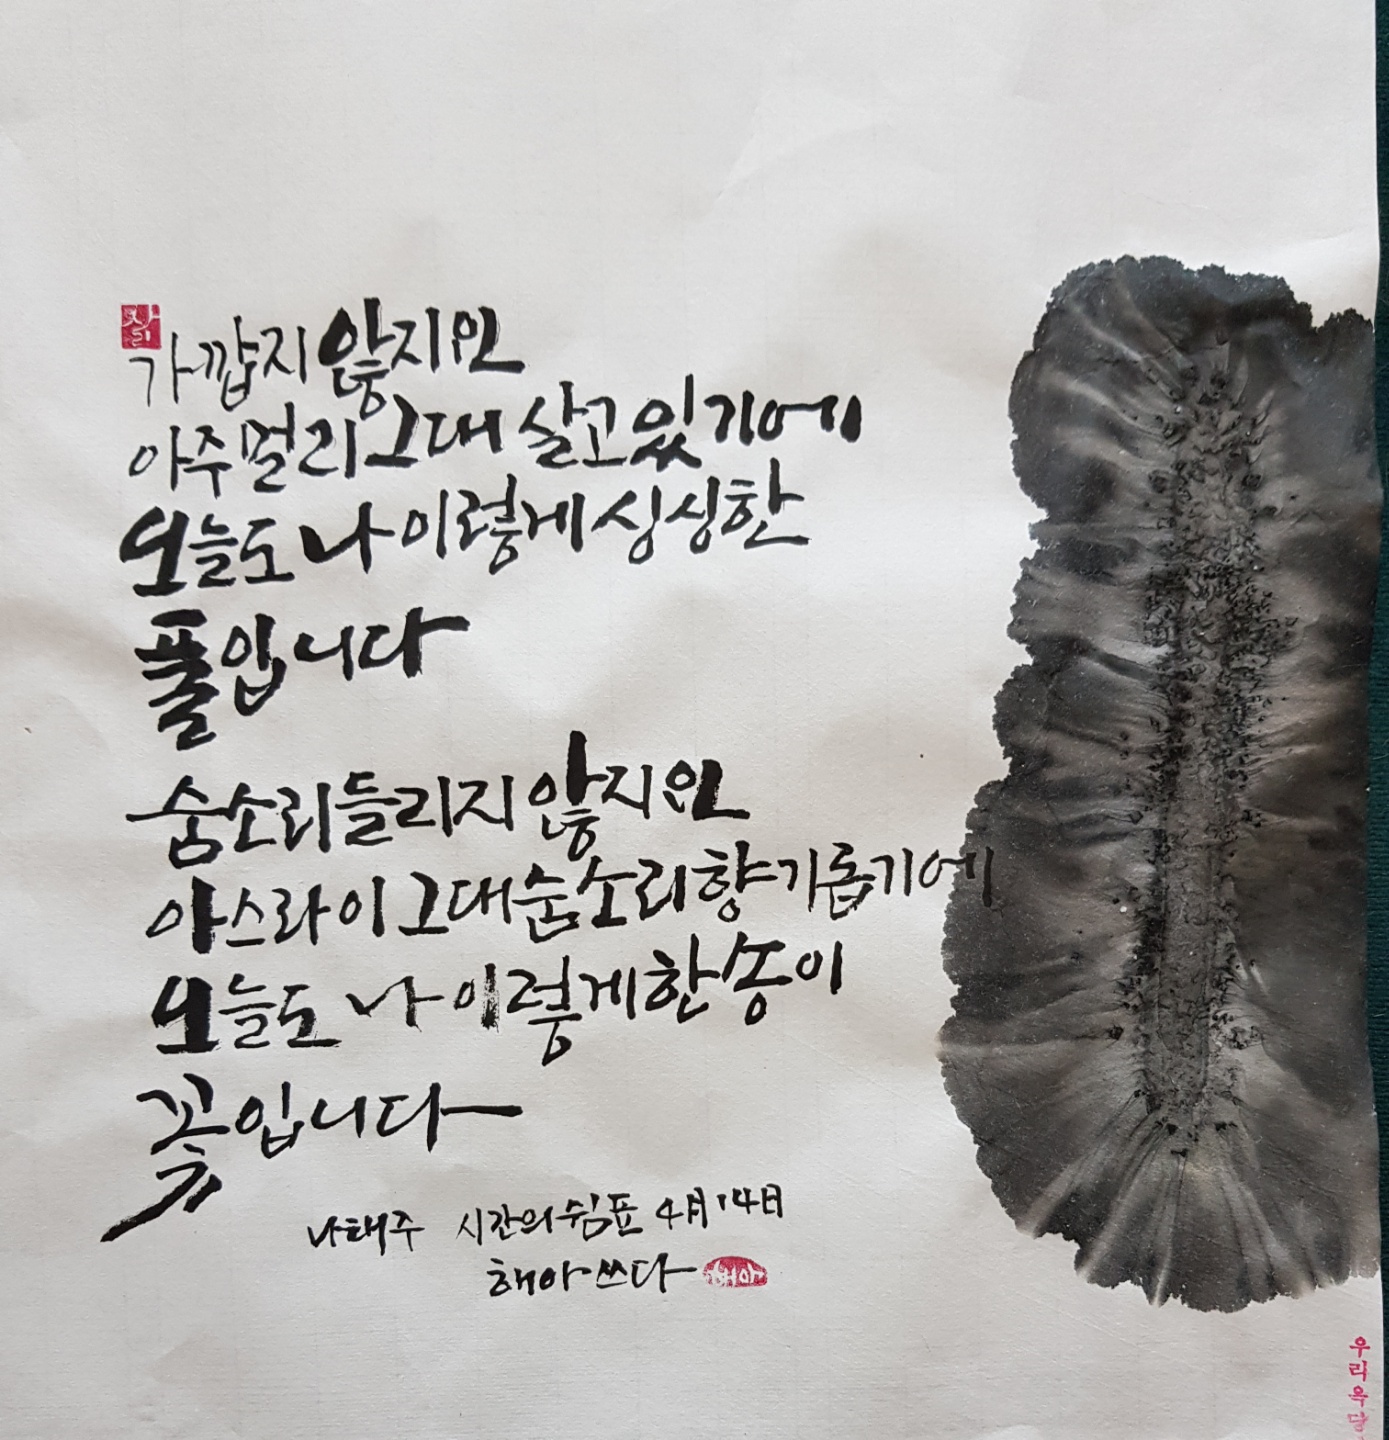 가깝지 않지만
아주 멀리 그대 살고 있기에
오늘도 나 이렇게 싱싱한
풀입니다
숨소리 들리지 않지만
아스라이 그대 숨소리 향기롭기에
오늘도 나 이렇게 한송이
꽃입니다
나태주 시간의 쉼표 4月 14日
해아 쓰다 해아
우리옥당